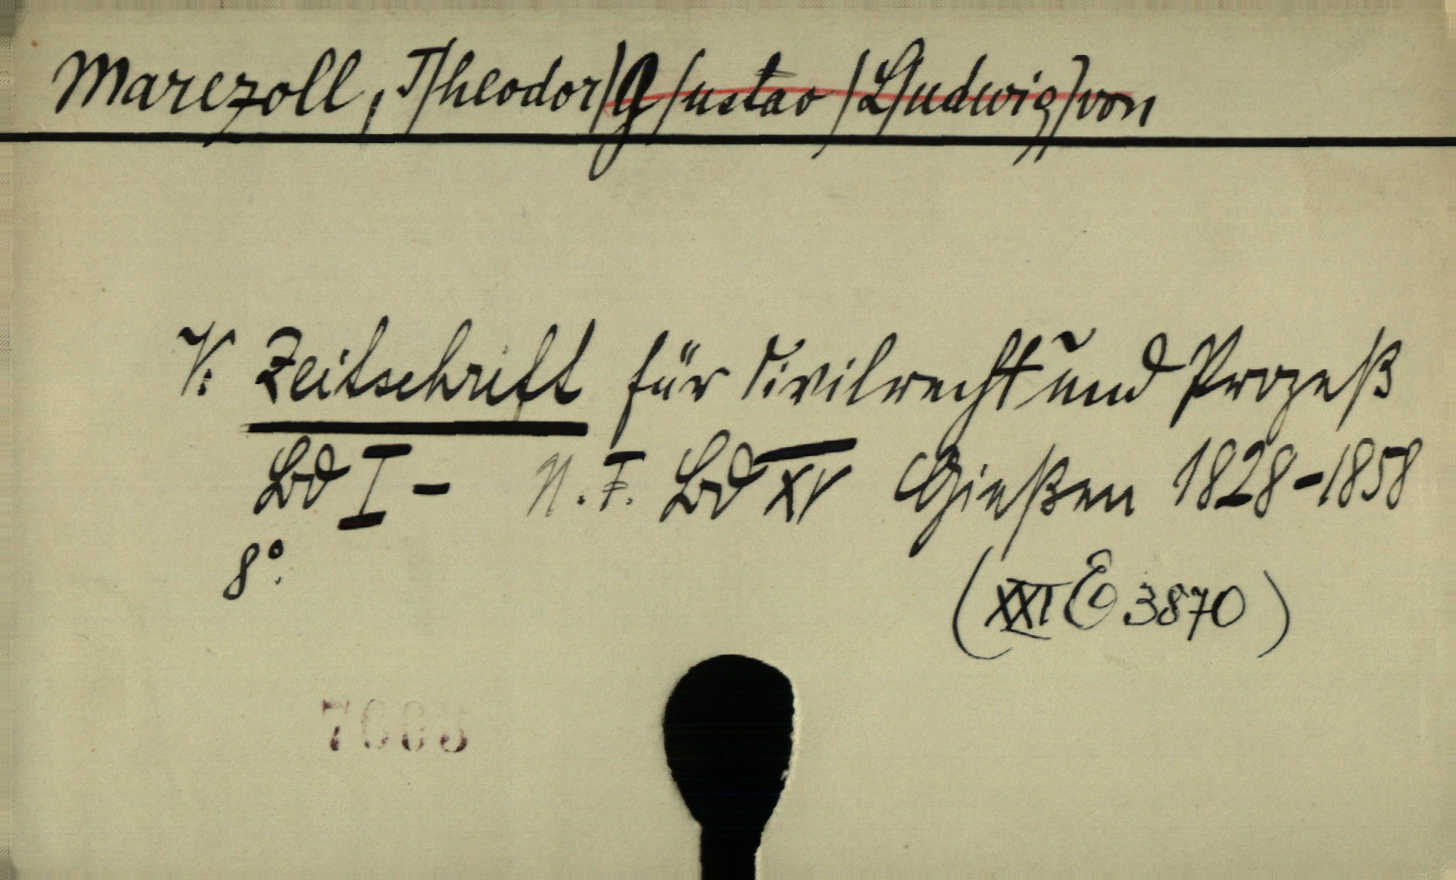 Marezoll, T/heodor/ G/ustav /L/udwig/ von
V: Zeitschrift für Civilrecht und Prozeß
Bd I - N.F. Bd XV Gießen 1828-1858
8°.
(XXI E 3870)